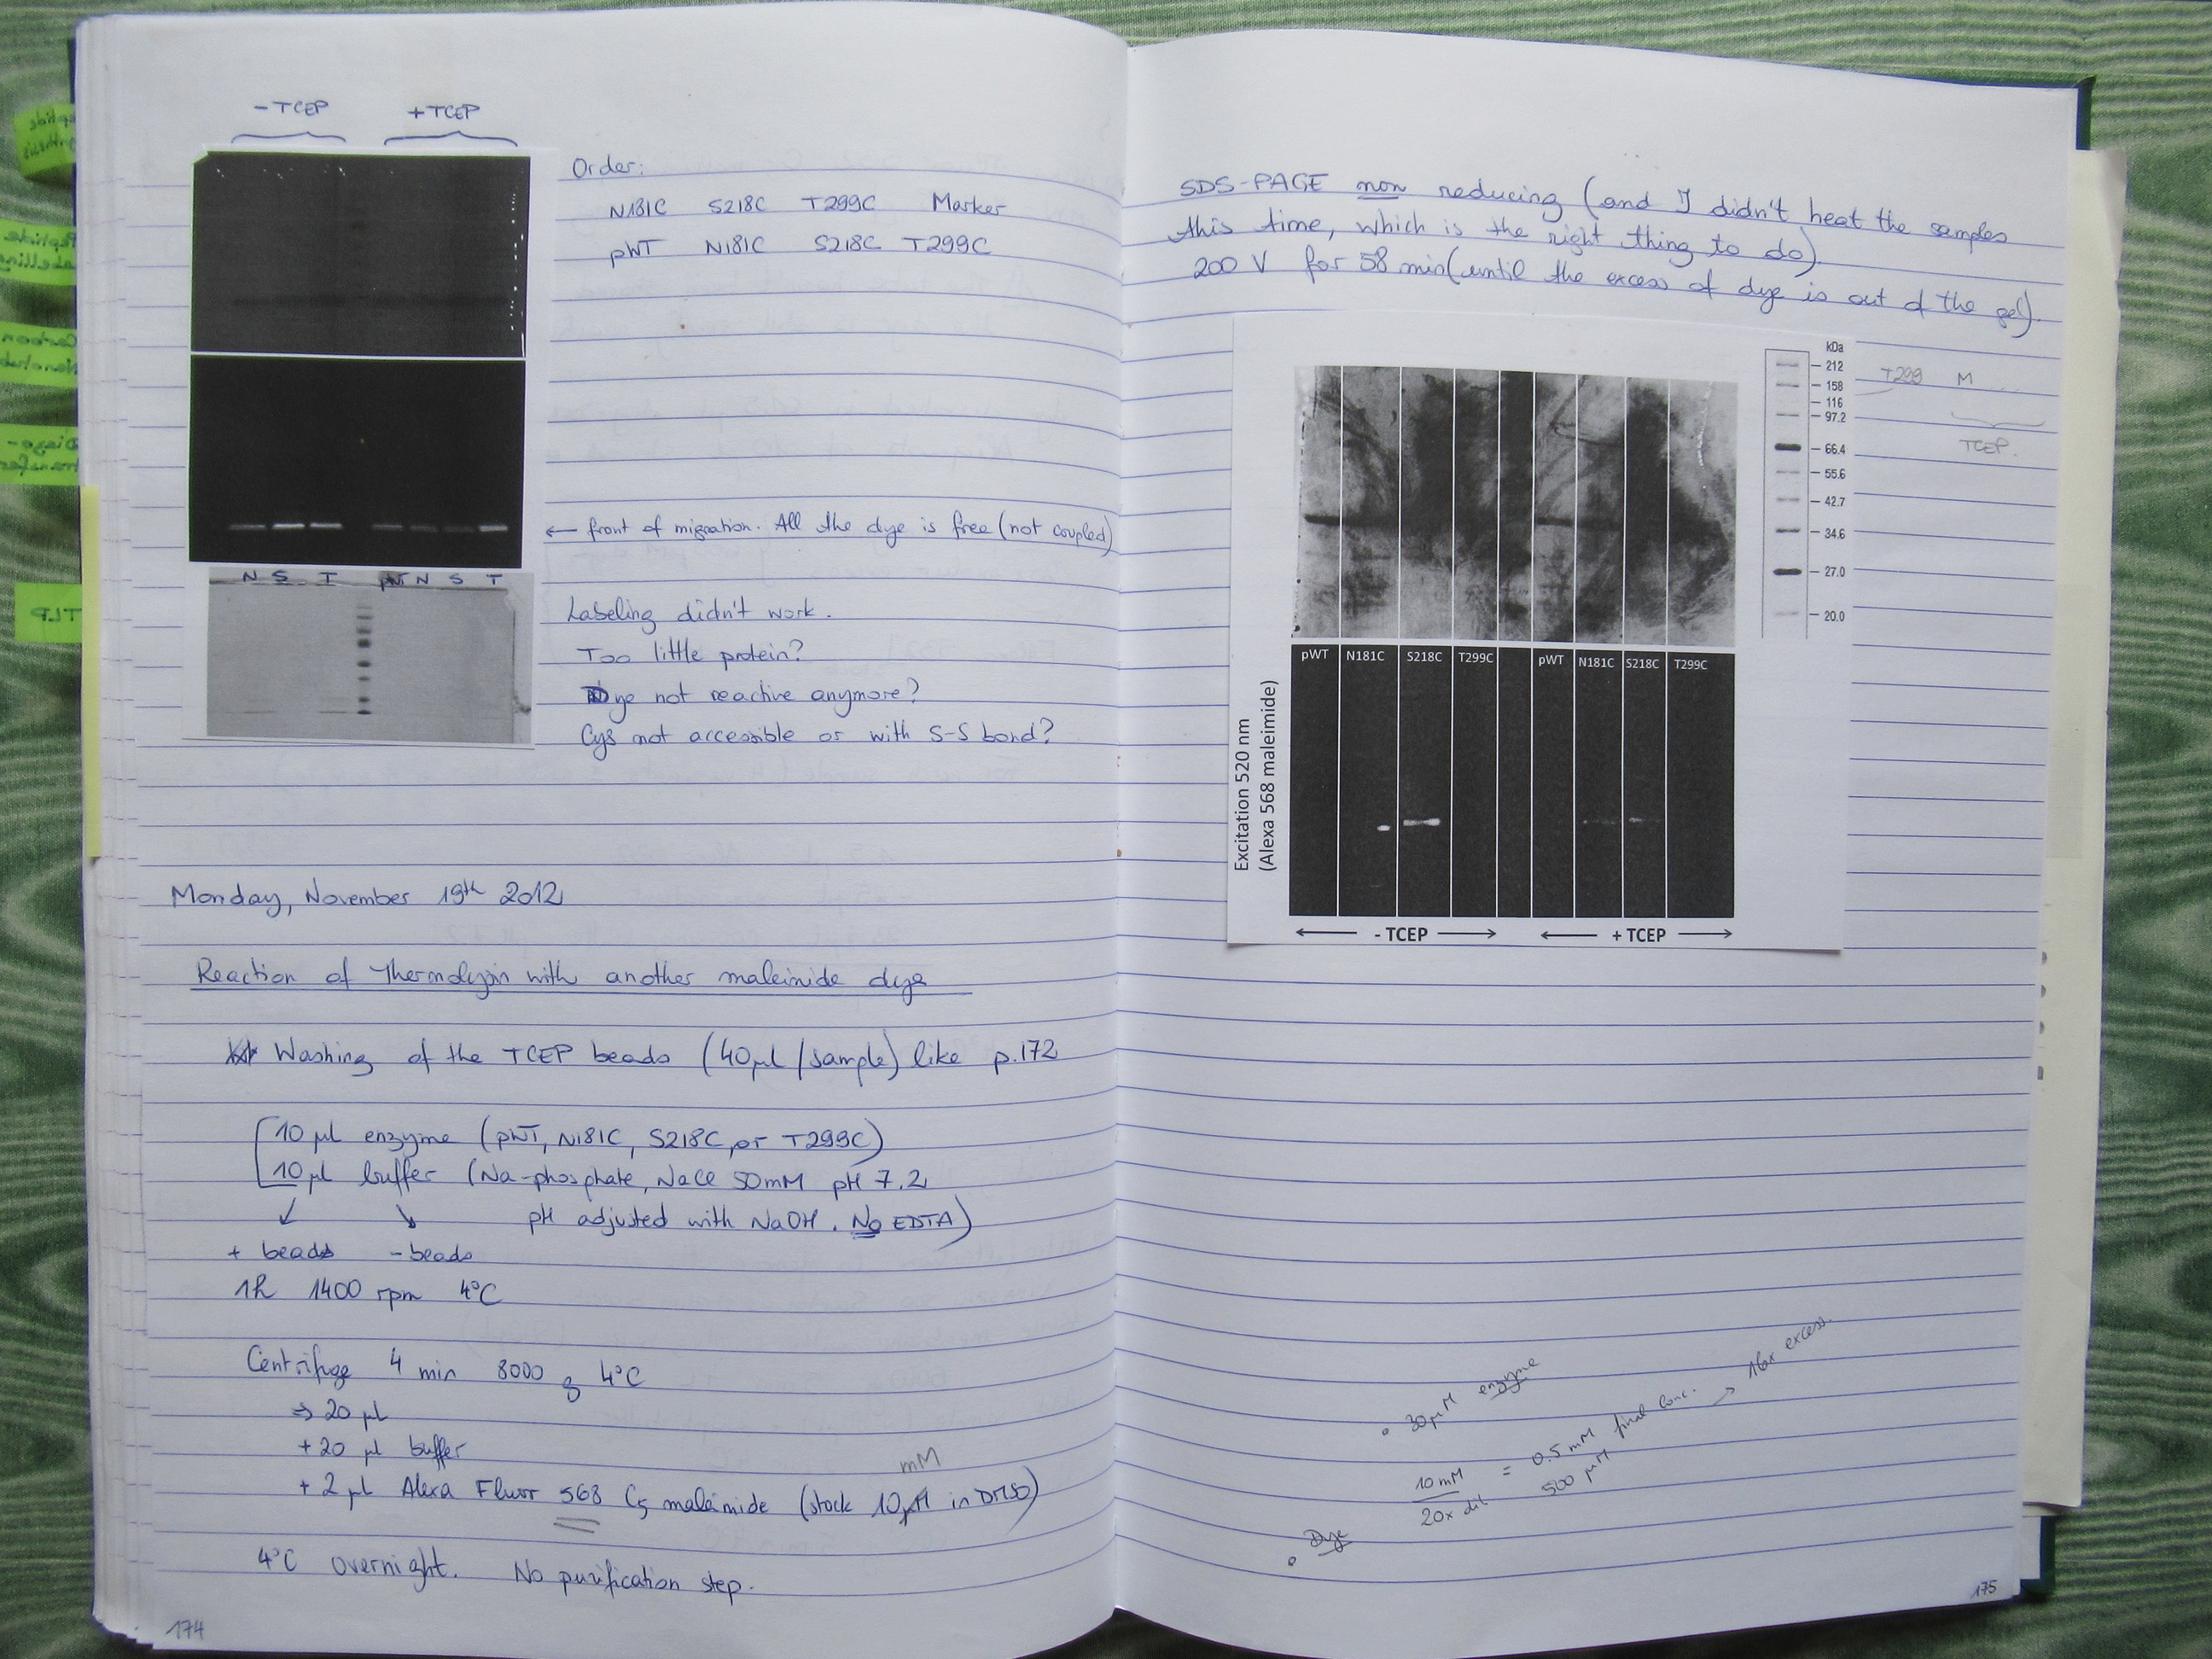 - TCEP
+ TCEP
Order:
N181C S218C T299C Marker
pWT N181C S218C T299C
← front of migration. All the dye is free (not coupled)
N S T pWT N S T
Labeling didn't work.
Too little protein?
Dye not reactive anymore?
Cys not accessible or with S-S bond?
Monday, November 19th 2012
Reaction of Thermolysin with another maleimide dye
Washing of the TCEP beads (40µl/sample) like p.172
10 µl enzyme (pWT, N181C, S218C, or T299C)
10 µl buffer (Na-phosphate, NaCl 50mM pH 7.2
pH adjusted with NaOH. No EDTA)
+ beads - beads
1h 1400 rpm 4°C
Centrifuge 4 min 8000 g 4°C
⇒ 20 µl
+ 20 µl buffer
mM
+ 2 µl Alexa Fluor 568 C5 maleimide (stock 10µM in DMSO)
4°C overnight. No purification step.
174
SDS-PAGE non reducing (and I didn't heat the samples
this time, which is the right thing to do)
200 V for 58 min (until the excess of dye is out of the gel).
kDa
212
158
116
97.2
66.4
55.6
42.7
34.6
27.0
20.0
T299 M
TCEP.
pWT N181C S218C T299C pWT N181C S218C T299C
Excitation 520 nm
(Alexa 568 maleimide)
- TCEP
+ TCEP
• 30µM enzyme
• Dye
10 mM
20x dil
= 0.5 mM final conc. → 16x excess.
500 µM
175
Peptide
Labelling
Carbon
Nanotub
Diazo-
transfer
TLP